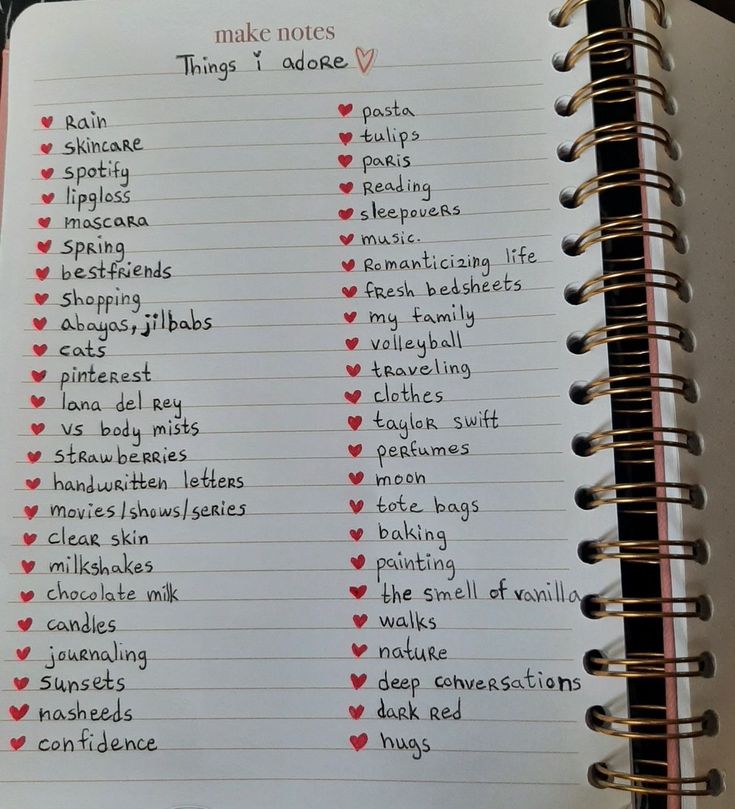 make notes
Things i adore
Rain
skincare
spotify
lipgloss
mascara
spring
bestfriends
shopping
abayas, jilbabs
cats
pinterest
lana del rey
vs body mists
strawberries
handwritten letters
movies/shows/series
clear skin
milkshakes
chocolate milk
candles
journaling
sunsets
nasheeds
confidence
pasta
tulips
paris
Reading
sleepovers
music.
Romanticizing life
fresh bedsheets
my family
volleyball
traveling
clothes
taylor swift
perfumes
moon
tote bags
baking
painting
the smell of vanilla
walks
nature
deep conversations
dark red
hugs